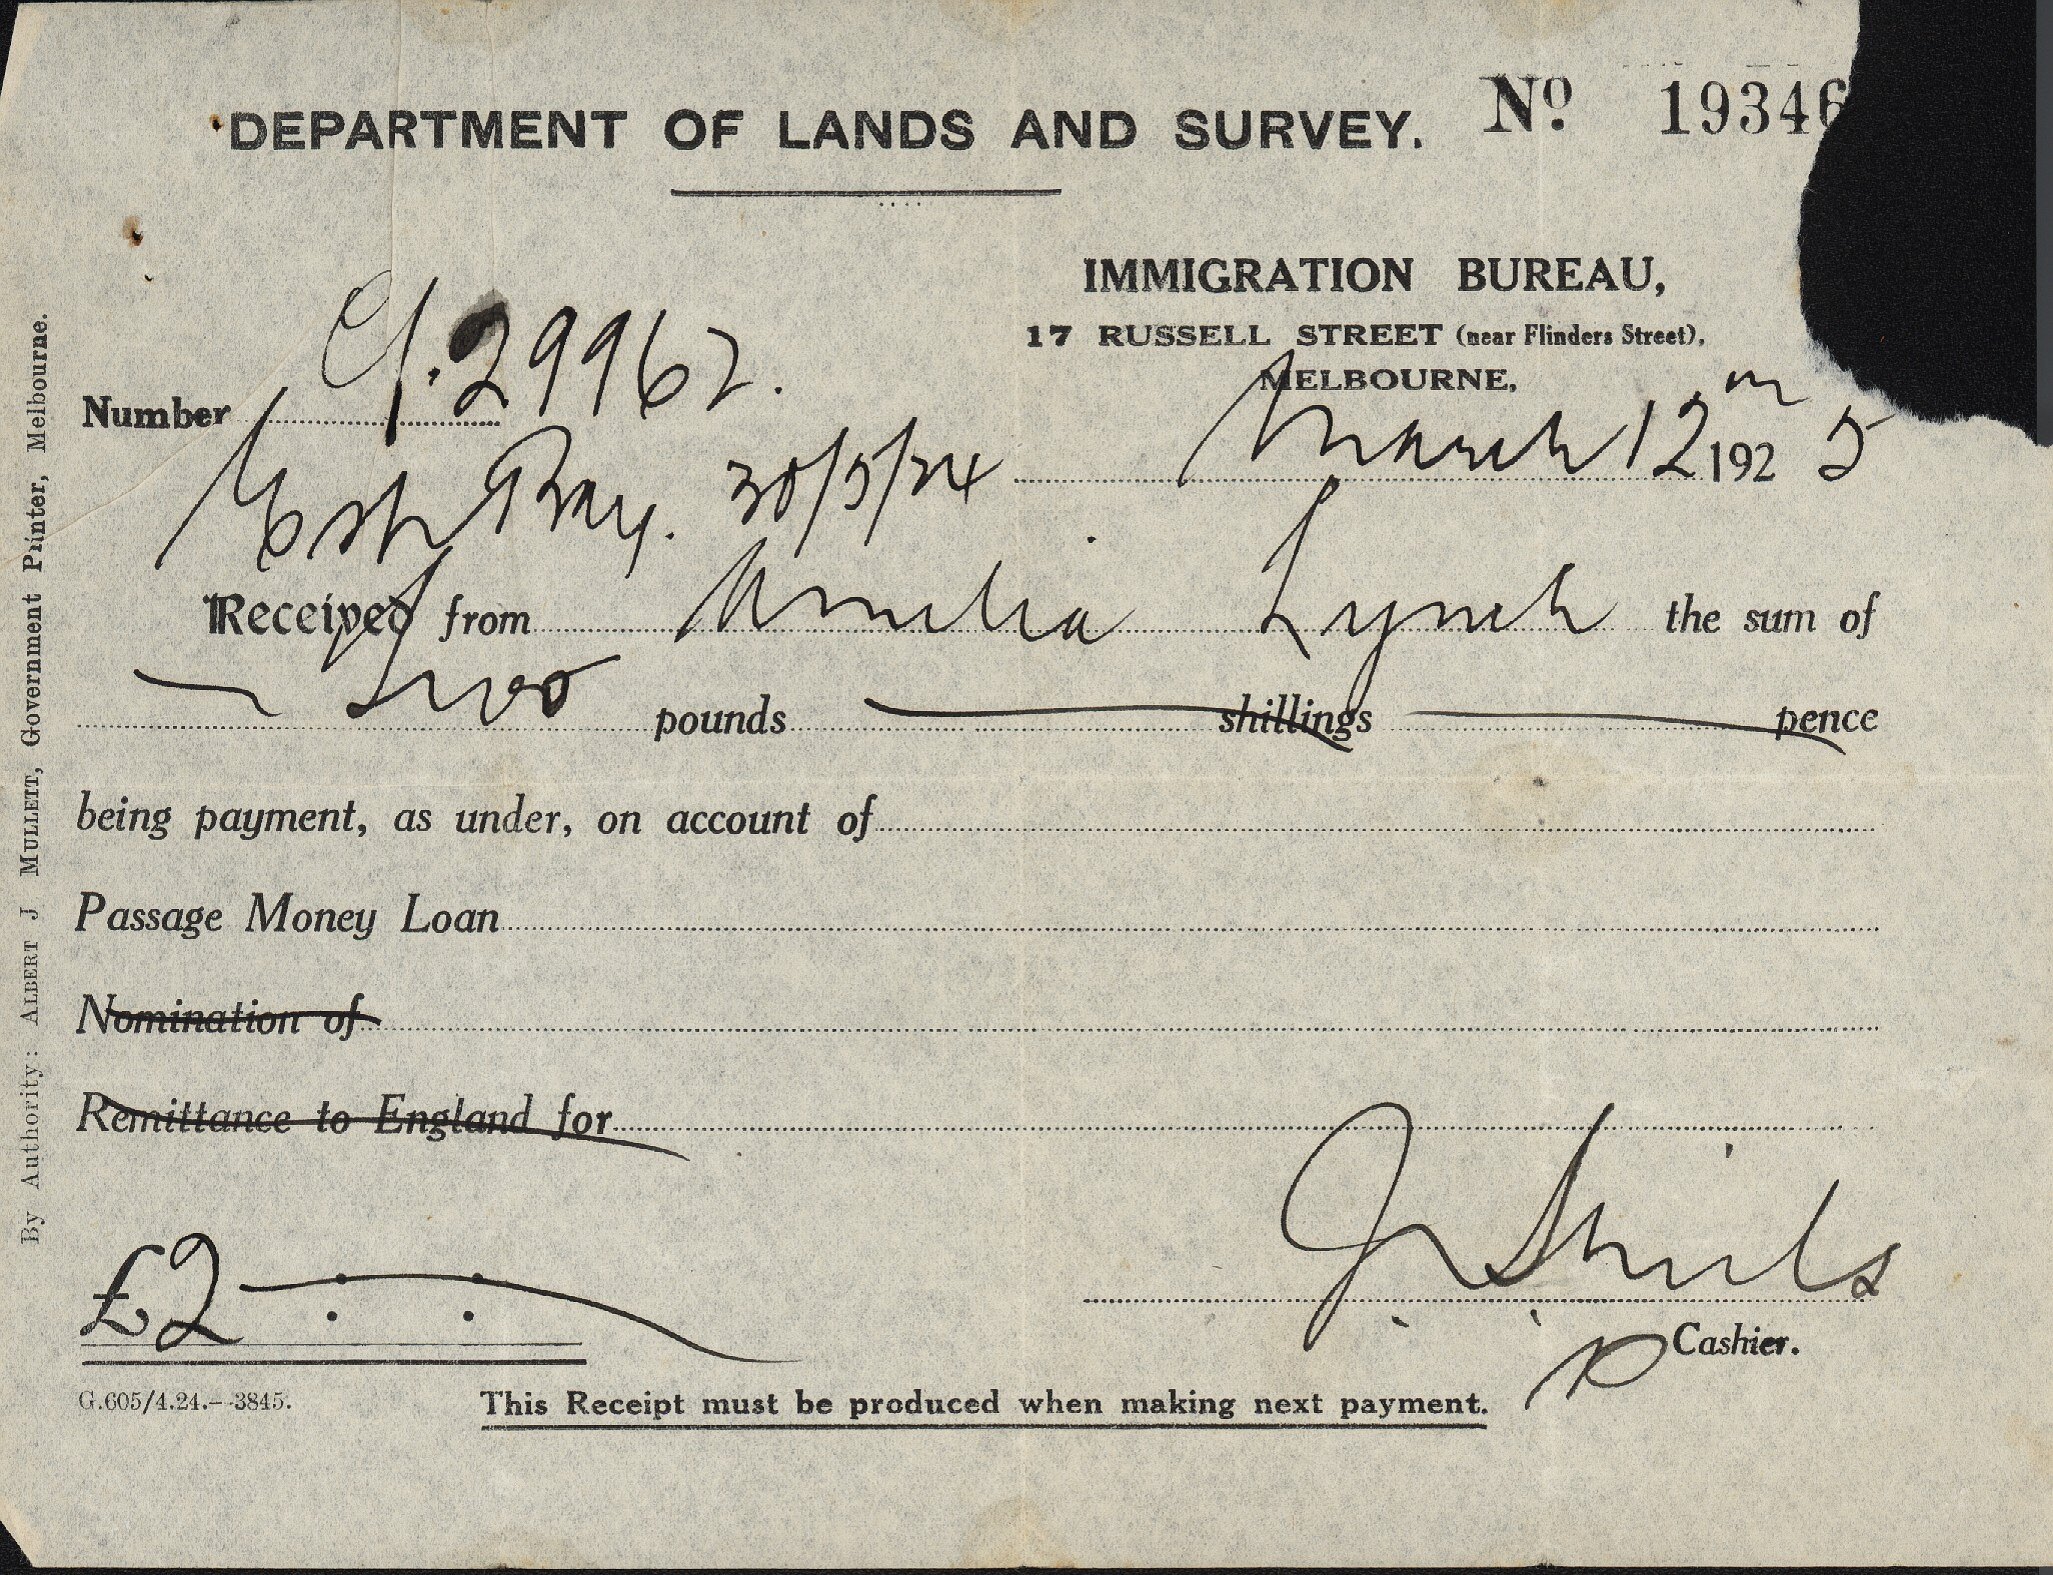 DEPARTMENT OF LANDS AND SURVEY. No. 19346
IMMIGRATION BUREAU,
17 RUSSELL STREET (near Flinders Street),
MELBOURNE,
Number 29962.
March 12th 192 5
Bay. 30/5/24
Received from Amelia Lynch the sum of
Two pounds shillings pence
being payment, as under, on account of
Passage Money Loan
Nomination of
Remittance to England for
J. Shiels
£2
Cashier.
G.605/4.24.—3845.
This Receipt must be produced when making next payment.
By Authority: ALBERT J MULLETT, Government Printer, Melbourne.